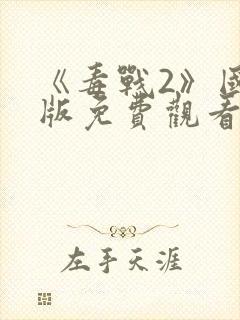 《毒戰2》國
版免費觀看
左手天涯